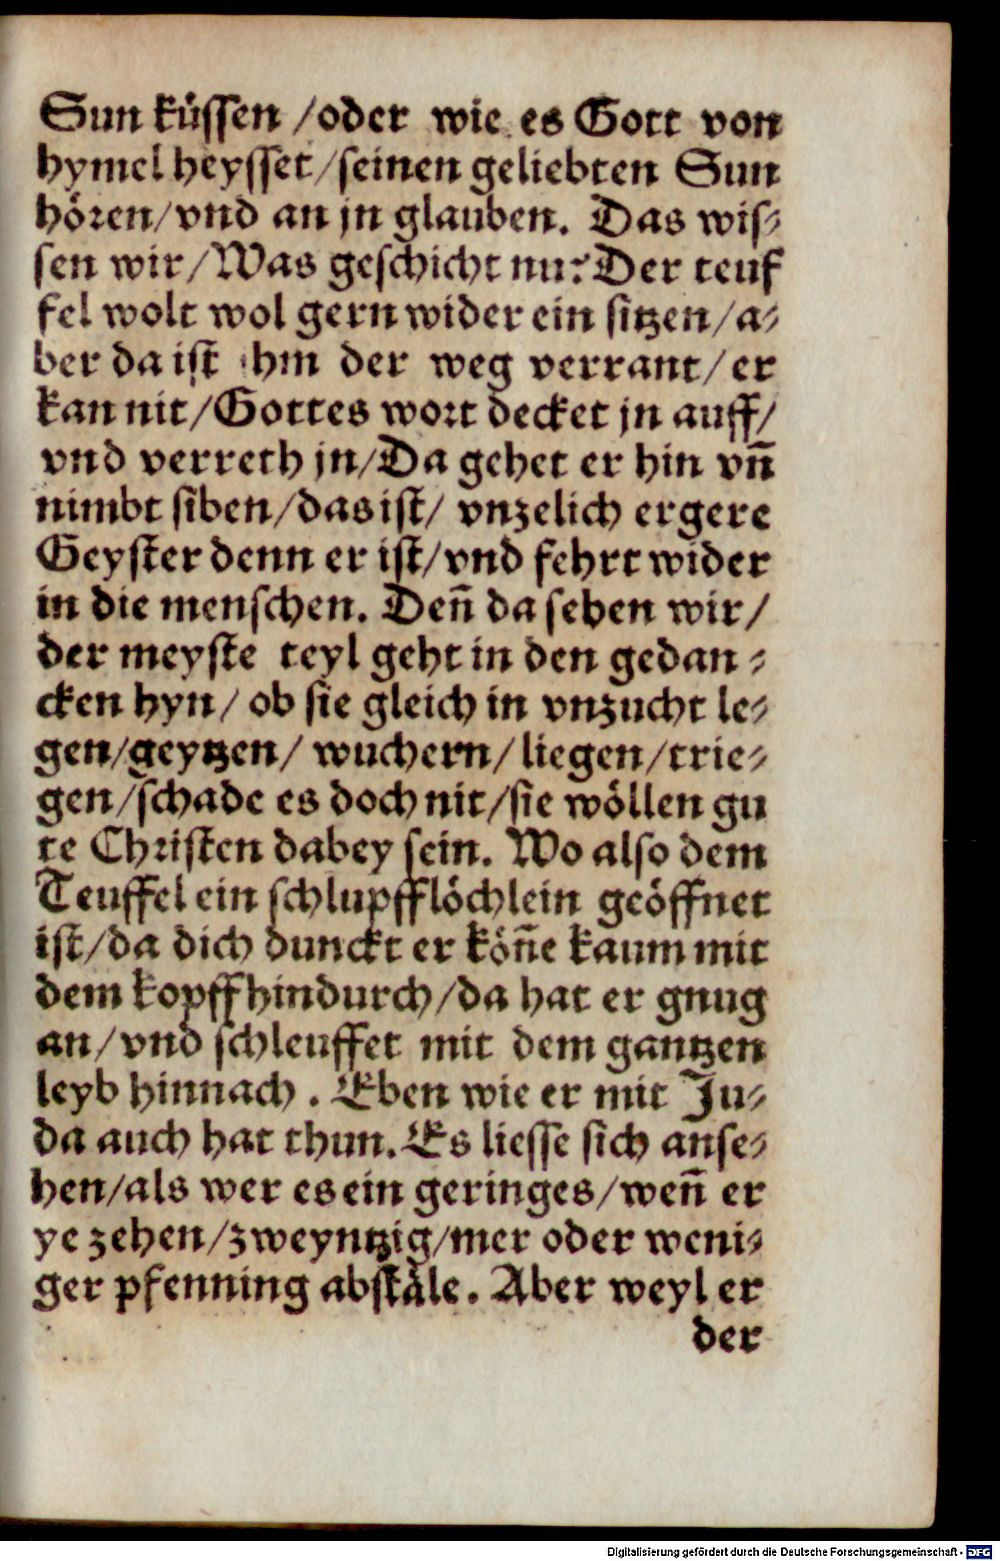 Sun küssen /oder wie es Gott von
hymel heysset/seinen geliebten Sun
hören/vnd an jn glauben. Das wis⸗
sen wir/Was geschicht nu? Der teuf
fel wolt wol gern wider ein sitzen/a⸗
ber da ist ihm der weg verrant/er
kan nit/Gottes wort decket jn auff/
vnd verreth jn/Da gehet er hin vn̄
nimbt siben/das ist/ vnzelich ergere
Geyster denn er ist/vnd fehrt wider
in die menschen. Den̄ da sehen wir/
der meyste teyl geht in den gedan⸗
cken hyn/ ob sie gleich in vnzucht le⸗
gen/geytzen/ wuchern/liegen/trie⸗
gen/schade es doch nit/sie wöllen gu
te Christen dabey sein. Wo also dem
Teuffel ein schlupfflöchlein geöffnet
ist/da dich dunckt er kön̄e kaum mit
dem kopff hindurch/da hat er gnug
an/vnd schleuffet mit dem gantzen
leyb hinnach . Eben wie er mit Ju⸗
da auch hat thun. Es liesse sich anse⸗
hen/als wer es ein geringes/wen̄ er
ye zehen/zweyntzig/mer oder weni⸗
ger pfenning abstäle. Aber weyl er
der
Digitalisierung gefördert durch die Deutsche Forschungsgemeinschaft - DFG